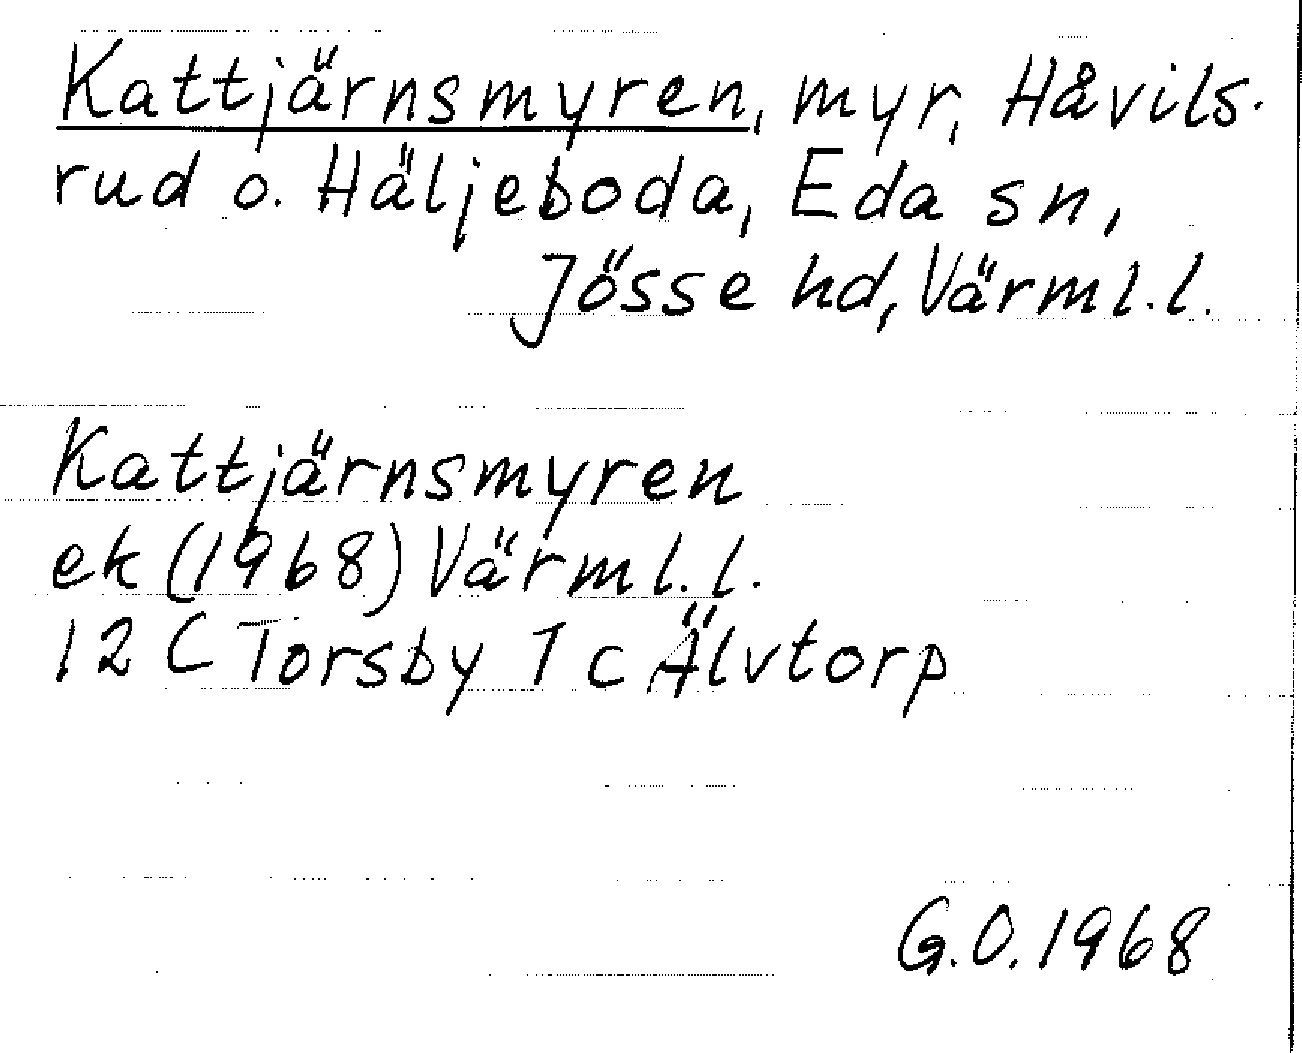 Kattjärnsmyren, myr, Håvils-
rud o. Häljeboda, Eda sn,
Jösse hd, Värml. l.
Kattjärnsmyren
ek (1968) Värml. l.
12 C Torsby 1 c Älvtorp
G.O. 1968